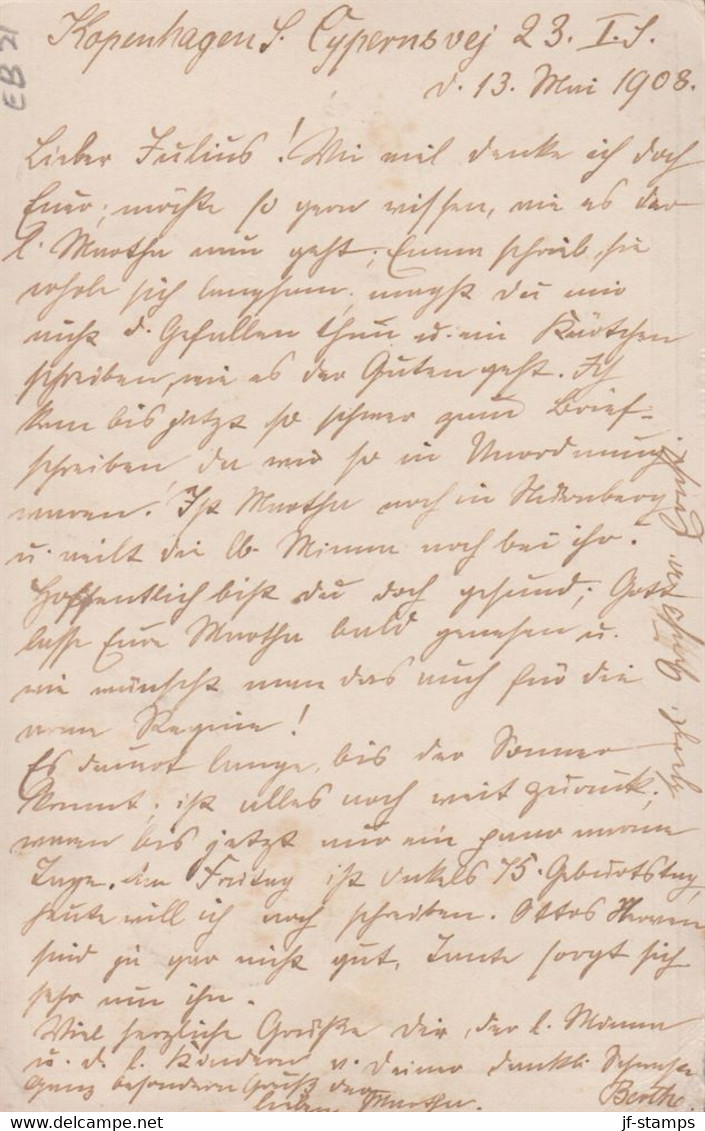 EB 21
Kopenhagen S. Cypernsvej 23. I. S.
d. 13. Mai 1908.
Lieber Julius! Wie viel denke ich doch
Euer; möchte so gern wissen, wie es der
l. Martha nun geht; Emma schrieb, sie
erhole sich langsam; magst Du mir
nicht d. Gefallen thun u. ein Kärtchen
schreiben, wie es der Guten geht. Ich
kam bis jetzt so schwer zum Brief-
schreiben, da wir so in Unordnung
waren. Ist Martha noch in Nürnberg
u. weilt die lb. Mimma noch bei ihr?
Hoffentlich bist Du doch gesund; Gott
lasse Eure Martha bald genesen u.
wie wünscht man das auch für die
arme Regine!
Es dauert lange, bis der Sommer
kommt; ist alles noch weit zurück;
waren bis jetzt nur ein paar warme
Tage. Am Freitag ist Onkels 75. Geburtstag,
heute will ich noch schreiben. Ottos Nerven
sind ja gar nicht gut, Tante sorgt sich
sehr um ihn.
Viel herzliche Grüße Dir, der l. Mimma
u. d. l. Kindern v. Deiner dankb.
Ganz besondern Gruß der
lieben Martha.
Berthe
jf-stamps